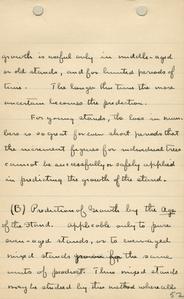 growth is useful only in middle-aged
or old stands, and for limited periods of
time. The longer this time the more
uncertain becomes the prediction.
For young stands, the loss in num-
bers is so great for even short periods that
the increment figures for individual trees
cannot be successfully or safely applied
in predicting the growth of the stand.
(B) Prediction of Growth by the Age
of the Stand. Applicable only to pure
even-aged stands, or to even aged
mixed stands for the same
units of product. Thus mixed stands
may be studied by this method where all